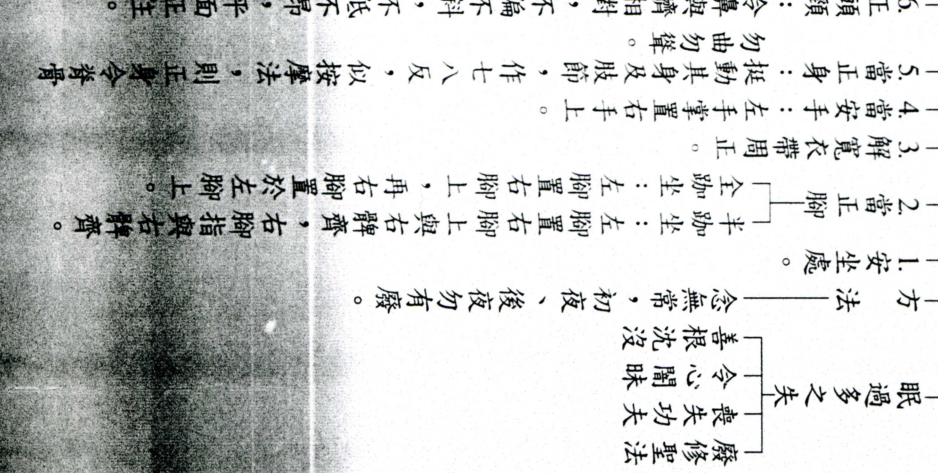 眠過多之失
廢修聖法
喪失功夫
令心闇昧
善根沈沒
方法 念無常，初夜、後夜勿有廢。
1.安坐處。
2.當正腳
半跏坐：左腳置右腳上與右髀齊，右腳指與右髀齊。
全跏坐：左腳置右腳上，再右腳置於左腳上。
3.解寬衣帶周正。
4.當安手：左手掌置右手上。
5.當正身：挺動其身及肢節，作七八反，似按摩法，則正身令脊骨
勿曲勿聳。
6.正頭頸：令鼻與臍相對，不偏不斜，不低不昂，平面正住。